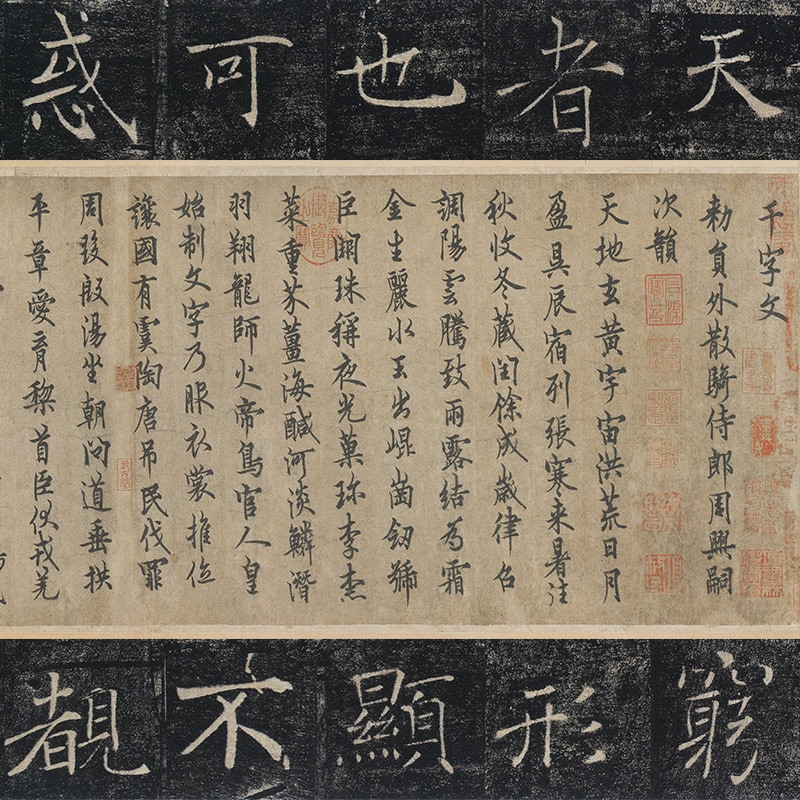 天者也可惑
千字文
勅員外散騎侍郎周興嗣
次韻
天地玄黃宇宙洪荒日月
盈昃辰宿列張寒来暑往
秋收冬蔵閏餘成歲律召
調陽雲騰致雨露結為霜
金生麗水玉出崐崗劒號
巨闕珠稱夜光菓珎李柰
菜重芥薑海醎河淡鱗潛
羽翔龍師火帝鳥官人皇
始制文字乃服衣裳推位
讓國有虞陶唐吊民伐罪
周發殷湯坐朝問道垂拱
平章愛育黎首臣伏戎羌
窮形顯不覩